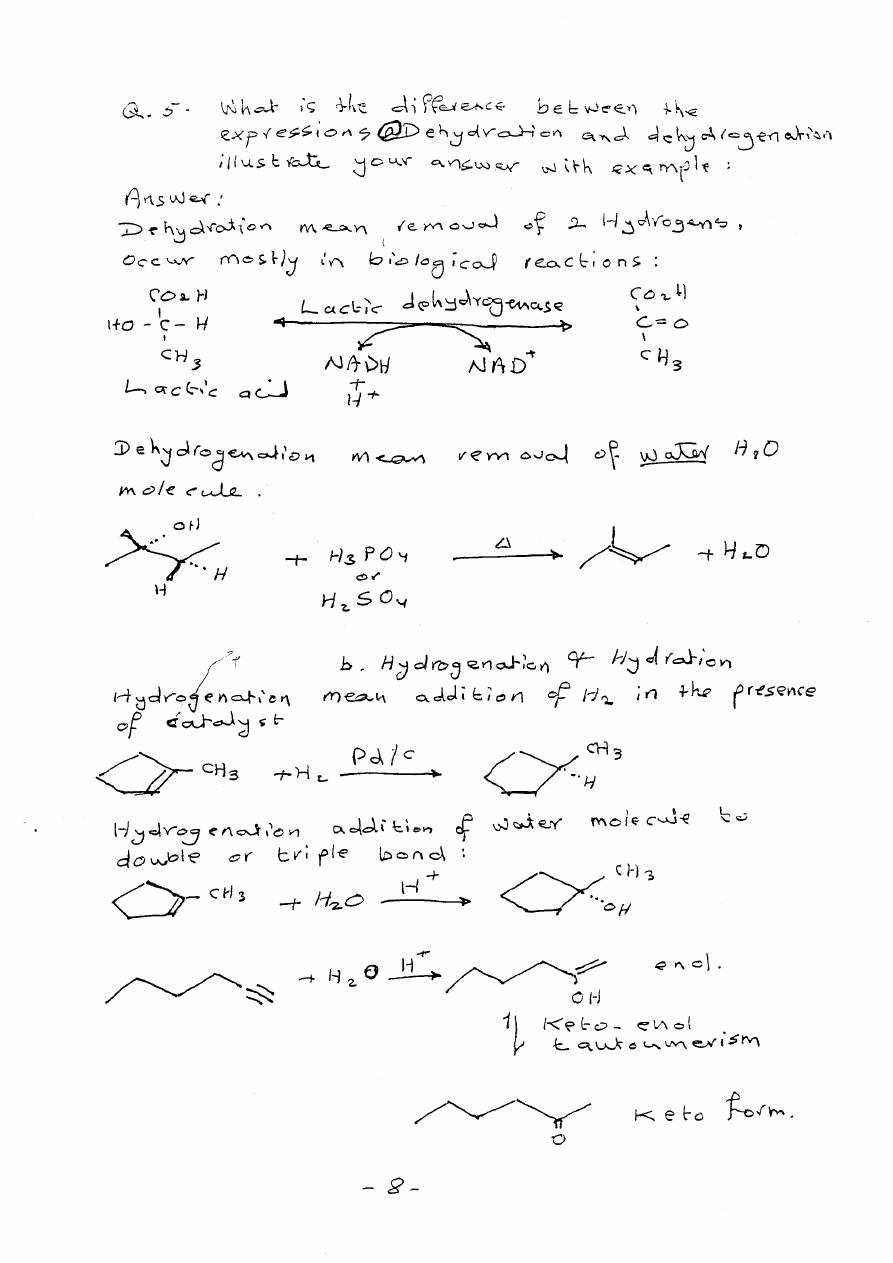 Q. 5. What is the difference between the
expressions @ Dehydration and dehydrogenation
illustrate your answer with example :
Answer:
Dehydration mean removal of 2 Hydrogens,
occur mostly in biological reactions :
CO2H Lactic dehydrogenase CO2H
HO - C - H C = O
CH3 NADH NAD+ CH3
Lactic acid + H+
Dehydrogenation mean removal of water H2O
molecule .
OH
+ H3PO4 Δ + H2O
H H or
H2SO4
b. Hydrogenation & Hydration
Hydrogenation mean addition of H2 in the presence
of catalyst
CH3 + H2 Pd/c CH3
H
Hydrogenation addition of water molecule to
double or triple bond :
CH3 + H2O H+ CH3
OH
+ H2O H+ enol.
OH
Keto-enol
tautoumerism
Keto form.
O
- 8 -